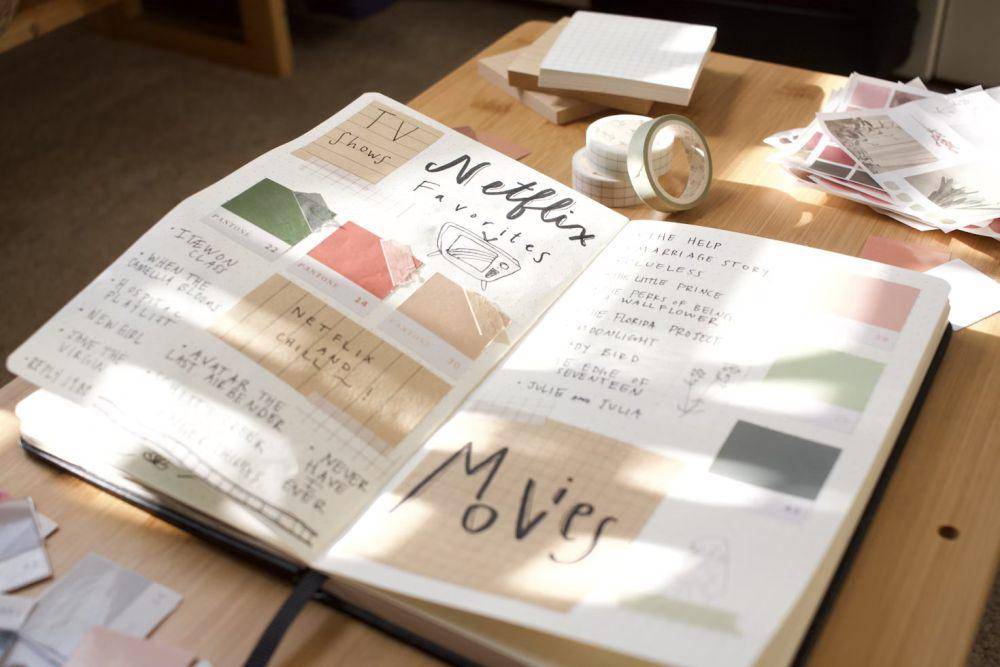 TV
Shows
Netflix
Favorites
PANTONE
22
PANTONE
24
PANTONE
30
NETFLIX
AND
CHILL
· ITEWON
CLASS
· WHEN THE
CAMELLIA BLOOMS
· HOSPITAL
PLAYLIST
· NEW GIRL
· JANE THE
VIRGIN
· REPLY
· AVATAR THE
LAST AIRBENDER
· NEVER
HAVE I
EVER
· THE HELP
MARRIAGE STORY
CLUELESS
THE LITTLE PRINCE
THE PERKS OF BEING
A WALLFLOWER
THE FLORIDA PROJECT
MOONLIGHT
DY BIRD
EDGE OF
SEVENTEEN
· JULIE AND JULIA
Movies